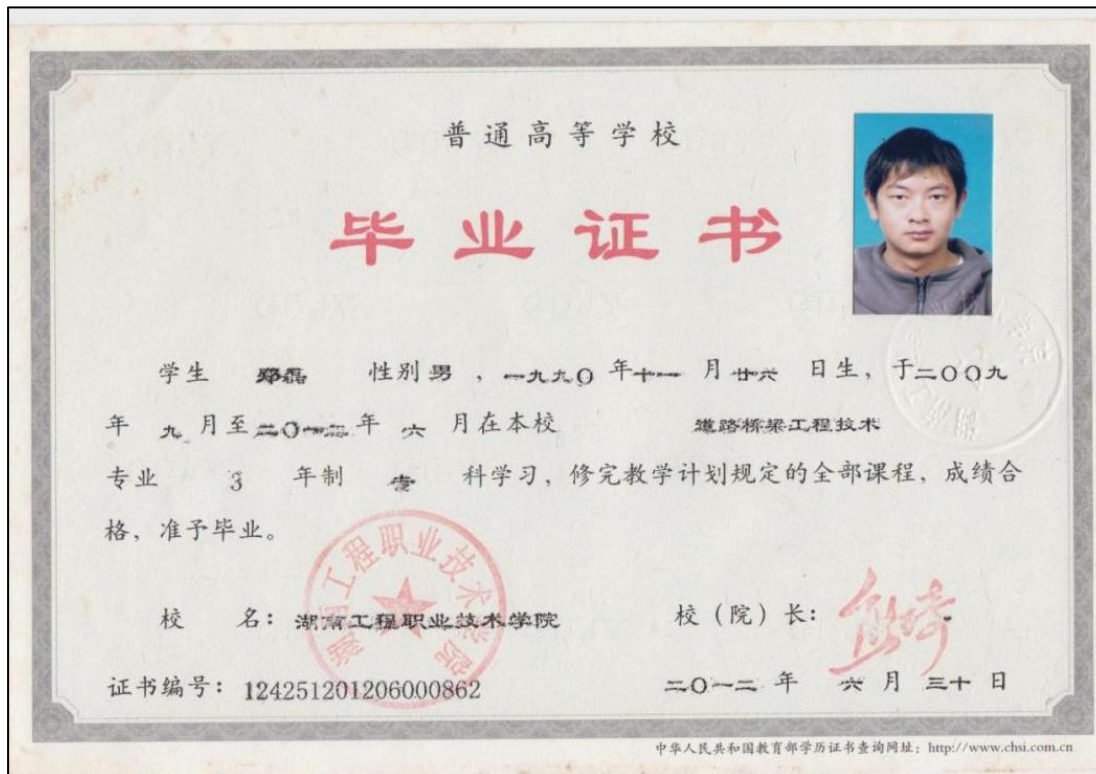 普通高等学校
毕业证书
学生 磊 性别男，一九九〇年十一月廿六日生，于二〇〇九
年九月至二〇一二年六月在本校 道路桥梁工程技术
专业 3 年制 专 科学习，修完教学计划规定的全部课程，成绩合
格，准予毕业。
湖南工程职业技术学院
校 名：湖南工程职业技术学院 校（院）长：
证书编号：124251201206000862 二〇一二年 六月三十日
中华人民共和国教育部学历证书查询网址：http://www.chsi.com.cn